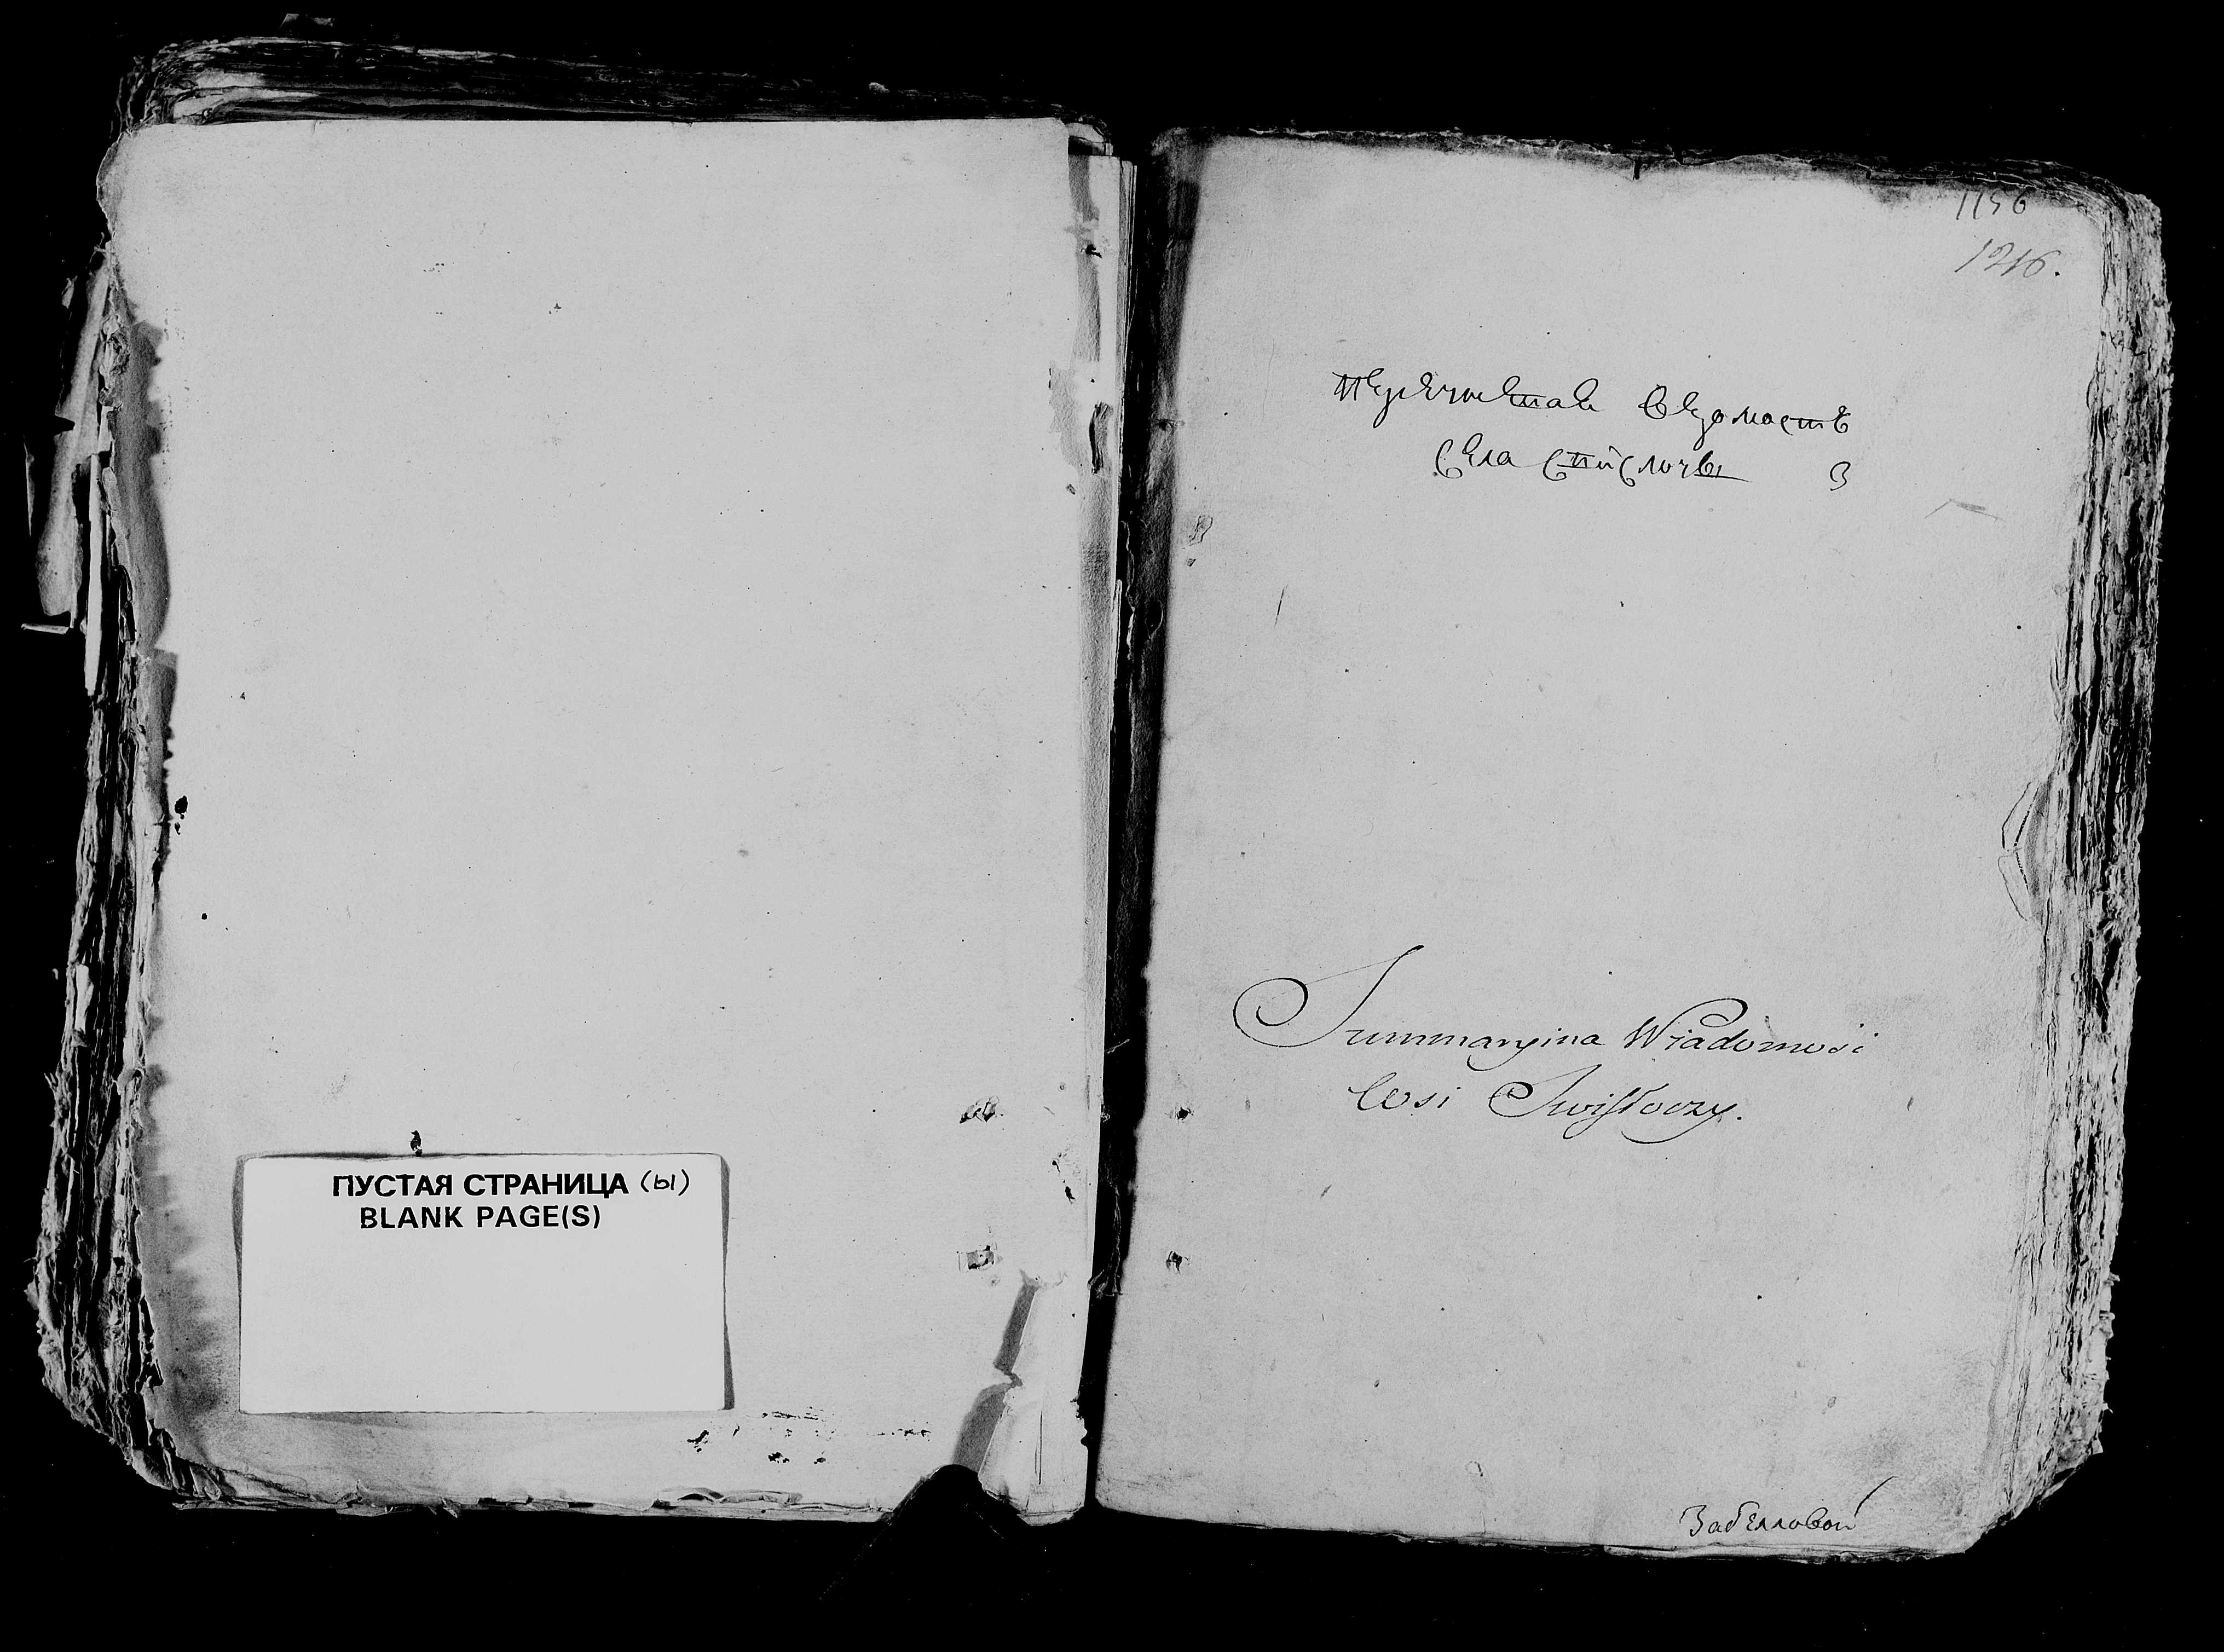 ПУСТАЯ СТРАНИЦА (ы)
BLANK PAGE(S)
1156
1216.
ведомость
Села
Summaryina Wiadomość
Wsi Swisłoczy.
Забелловой